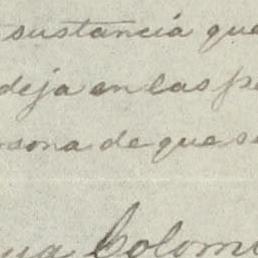 sustancia que
deja en las pe
rsona de que se
Colom